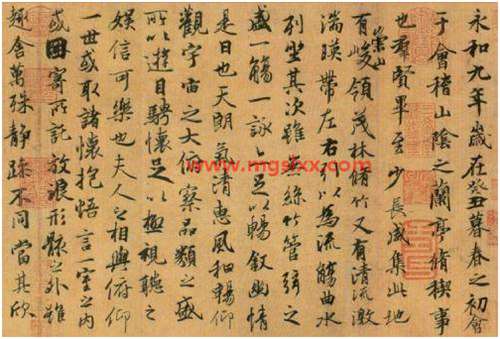 永和九年歲在癸丑暮春之初會
于會稽山陰之蘭亭脩稧事
也羣賢畢至少長咸集此地
有崇山峻領茂林脩竹又有清流激
湍暎帶左右引以為流觴曲水
列坐其次雖無絲竹管弦之
盛一觴一詠亦足以暢叙幽情
是日也天朗氣清惠風和暢仰
觀宇宙之大俯察品類之盛
所以遊目騁懷足以極視聽之
娛信可樂也夫人之相與俯仰
一世或取諸懷抱悟言一室之內
或因寄所託放浪形骸之外雖
趣舍萬殊靜躁不同當其欣
www.mgsfxx.com